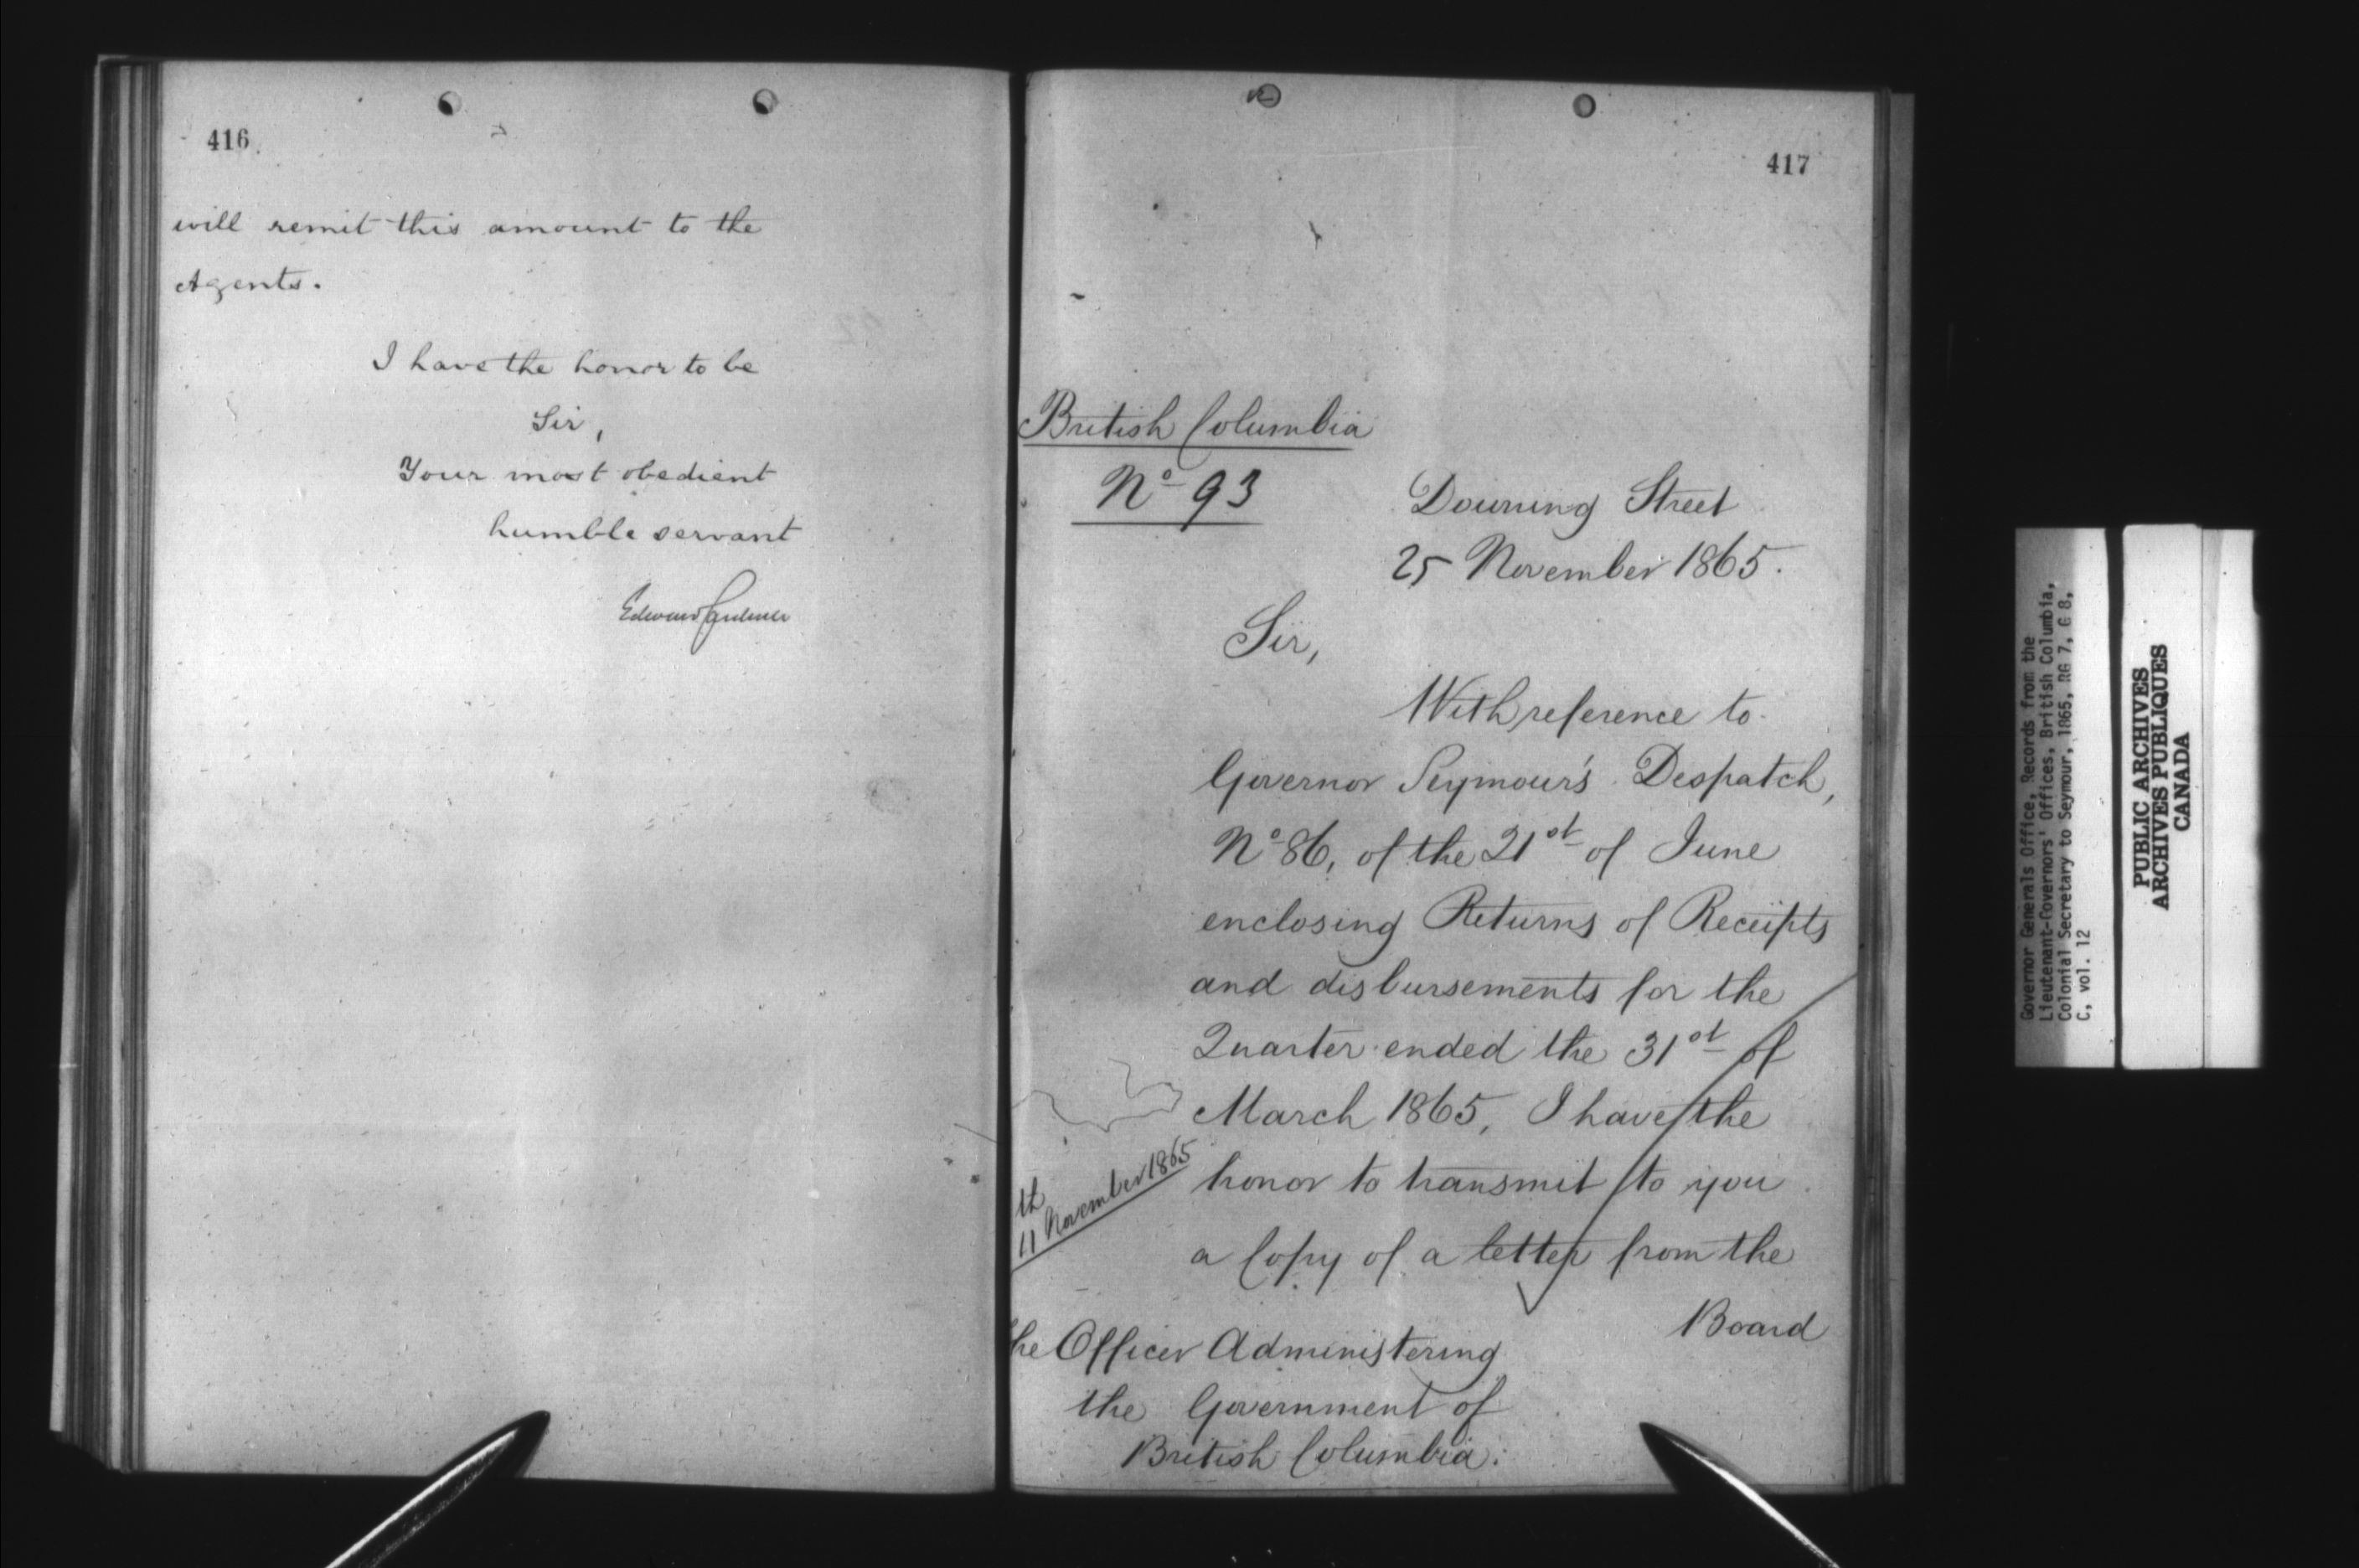 416
will remit this amount to the
Agents.
I have the honor to be
Sir,
Your most obedient
humble servant
Edward Cardwell
417
British Columbia
No 93
Downing Street
25 November 1865.
Sir,
With reference to
Governor Seymour's Despatch,
No 86, of the 21st of June
enclosing Returns of Receipts
and disbursements for the
Quarter ended the 31st of
March 1865, I have the
honor to transmit to you
a Copy of a letter from the
Board
th
11 November 1865
he Officer Administering
the Government of
British Columbia.
Governor Generals Office, Records from the
Lieutenant-Governors' Offices, British Columbia,
Colonial Secretary to Seymour, 1865, RG 7, G 8,
C, vol. 12
PUBLIC ARCHIVES
ARCHIVES PUBLIQUES
CANADA